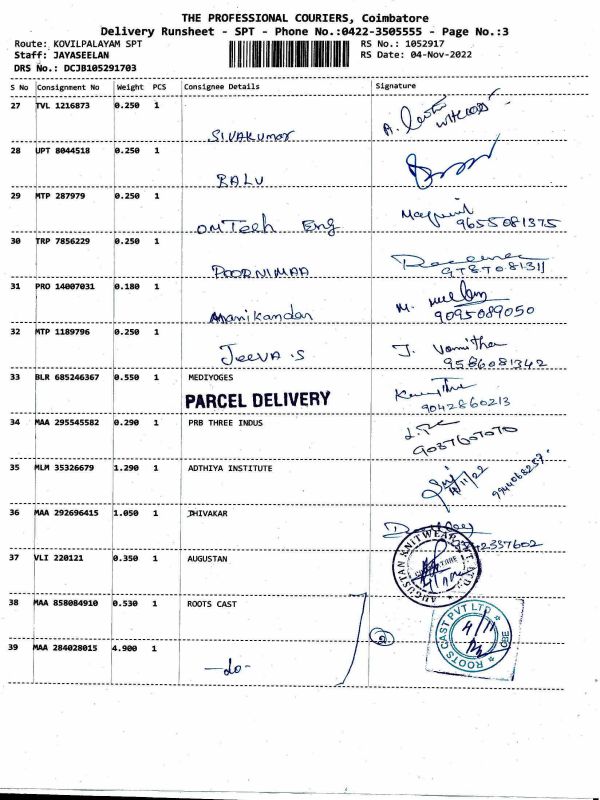 THE PROFESSIONAL COURIERS, Coimbatore
Delivery Runsheet - SPT - Phone No.:0422-3505555 - Page No.:3
Route: KOVILPALAYAM SPT RS No.: 1052917
Staff: JAYASEELAN RS Date: 04-Nov-2022
DRS No.: DCJB105291703
S No Consignment No Weight PCS Consignee Details Signature
27 TVL 1216873 0.250 1
SIVAKUMAR A.
28 UPT 8044518 0.250 1
BALU
29 MTP 287979 0.250 1
OMTech Eng 9655081375
30 TRP 7856229 0.250 1
POORNIMAA 9787081311
31 PRO 14007031 0.180 1 M.
Manikandan 9095089050
32 MTP 1189796 0.250 1 J. Vanitha
JEEVA.S 9586081342
33 BLR 685246367 0.550 1 MEDIYOGES
PARCEL DELIVERY 9042860213
34 MAA 295545582 0.290 1 PRB THREE INDUS
9037607070
35 MLM 35326679 1.290 1 ADTHIYA INSTITUTE 4/11/22
36 MAA 292696415 1.050 1 DHIVAKAR
2337602
37 VLI 220121 0.350 1 AUGUSTAN AUGUSTAN KNITWEAR PVT. LTD.
38 MAA 858084910 0.530 1 ROOTS CAST ROOTS CAST PVT LTD CBE
4/11
39 MAA 284028015 4.900 1 2
-do-